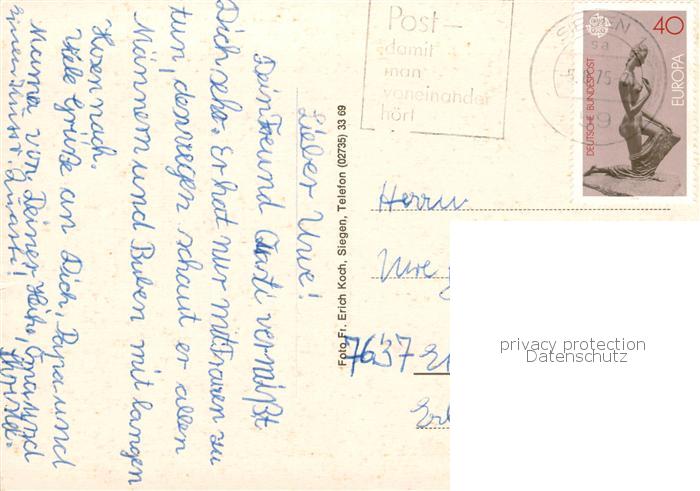 Lieber Uwe!
Dein Freund Quasti vermißt
Dich sehr. Er hat nur mit Frauen zu
tun, deswegen schaut er allen
Männern und Buben mit langen
Hosen nach.
Viele Grüße an Dich, Papa und
Mama von Deiner Heike, Oma und
Christel.
Foto Fr. Erich Koch, Siegen, Telefon (02735) 33 69
Post –
damit
man
voneinander
hört
SIEGEN 1
sa
75
59
40
EUROPA
DEUTSCHE BUNDESPOST
Herrn
Uwe
7637
privacy protection
Datenschutz